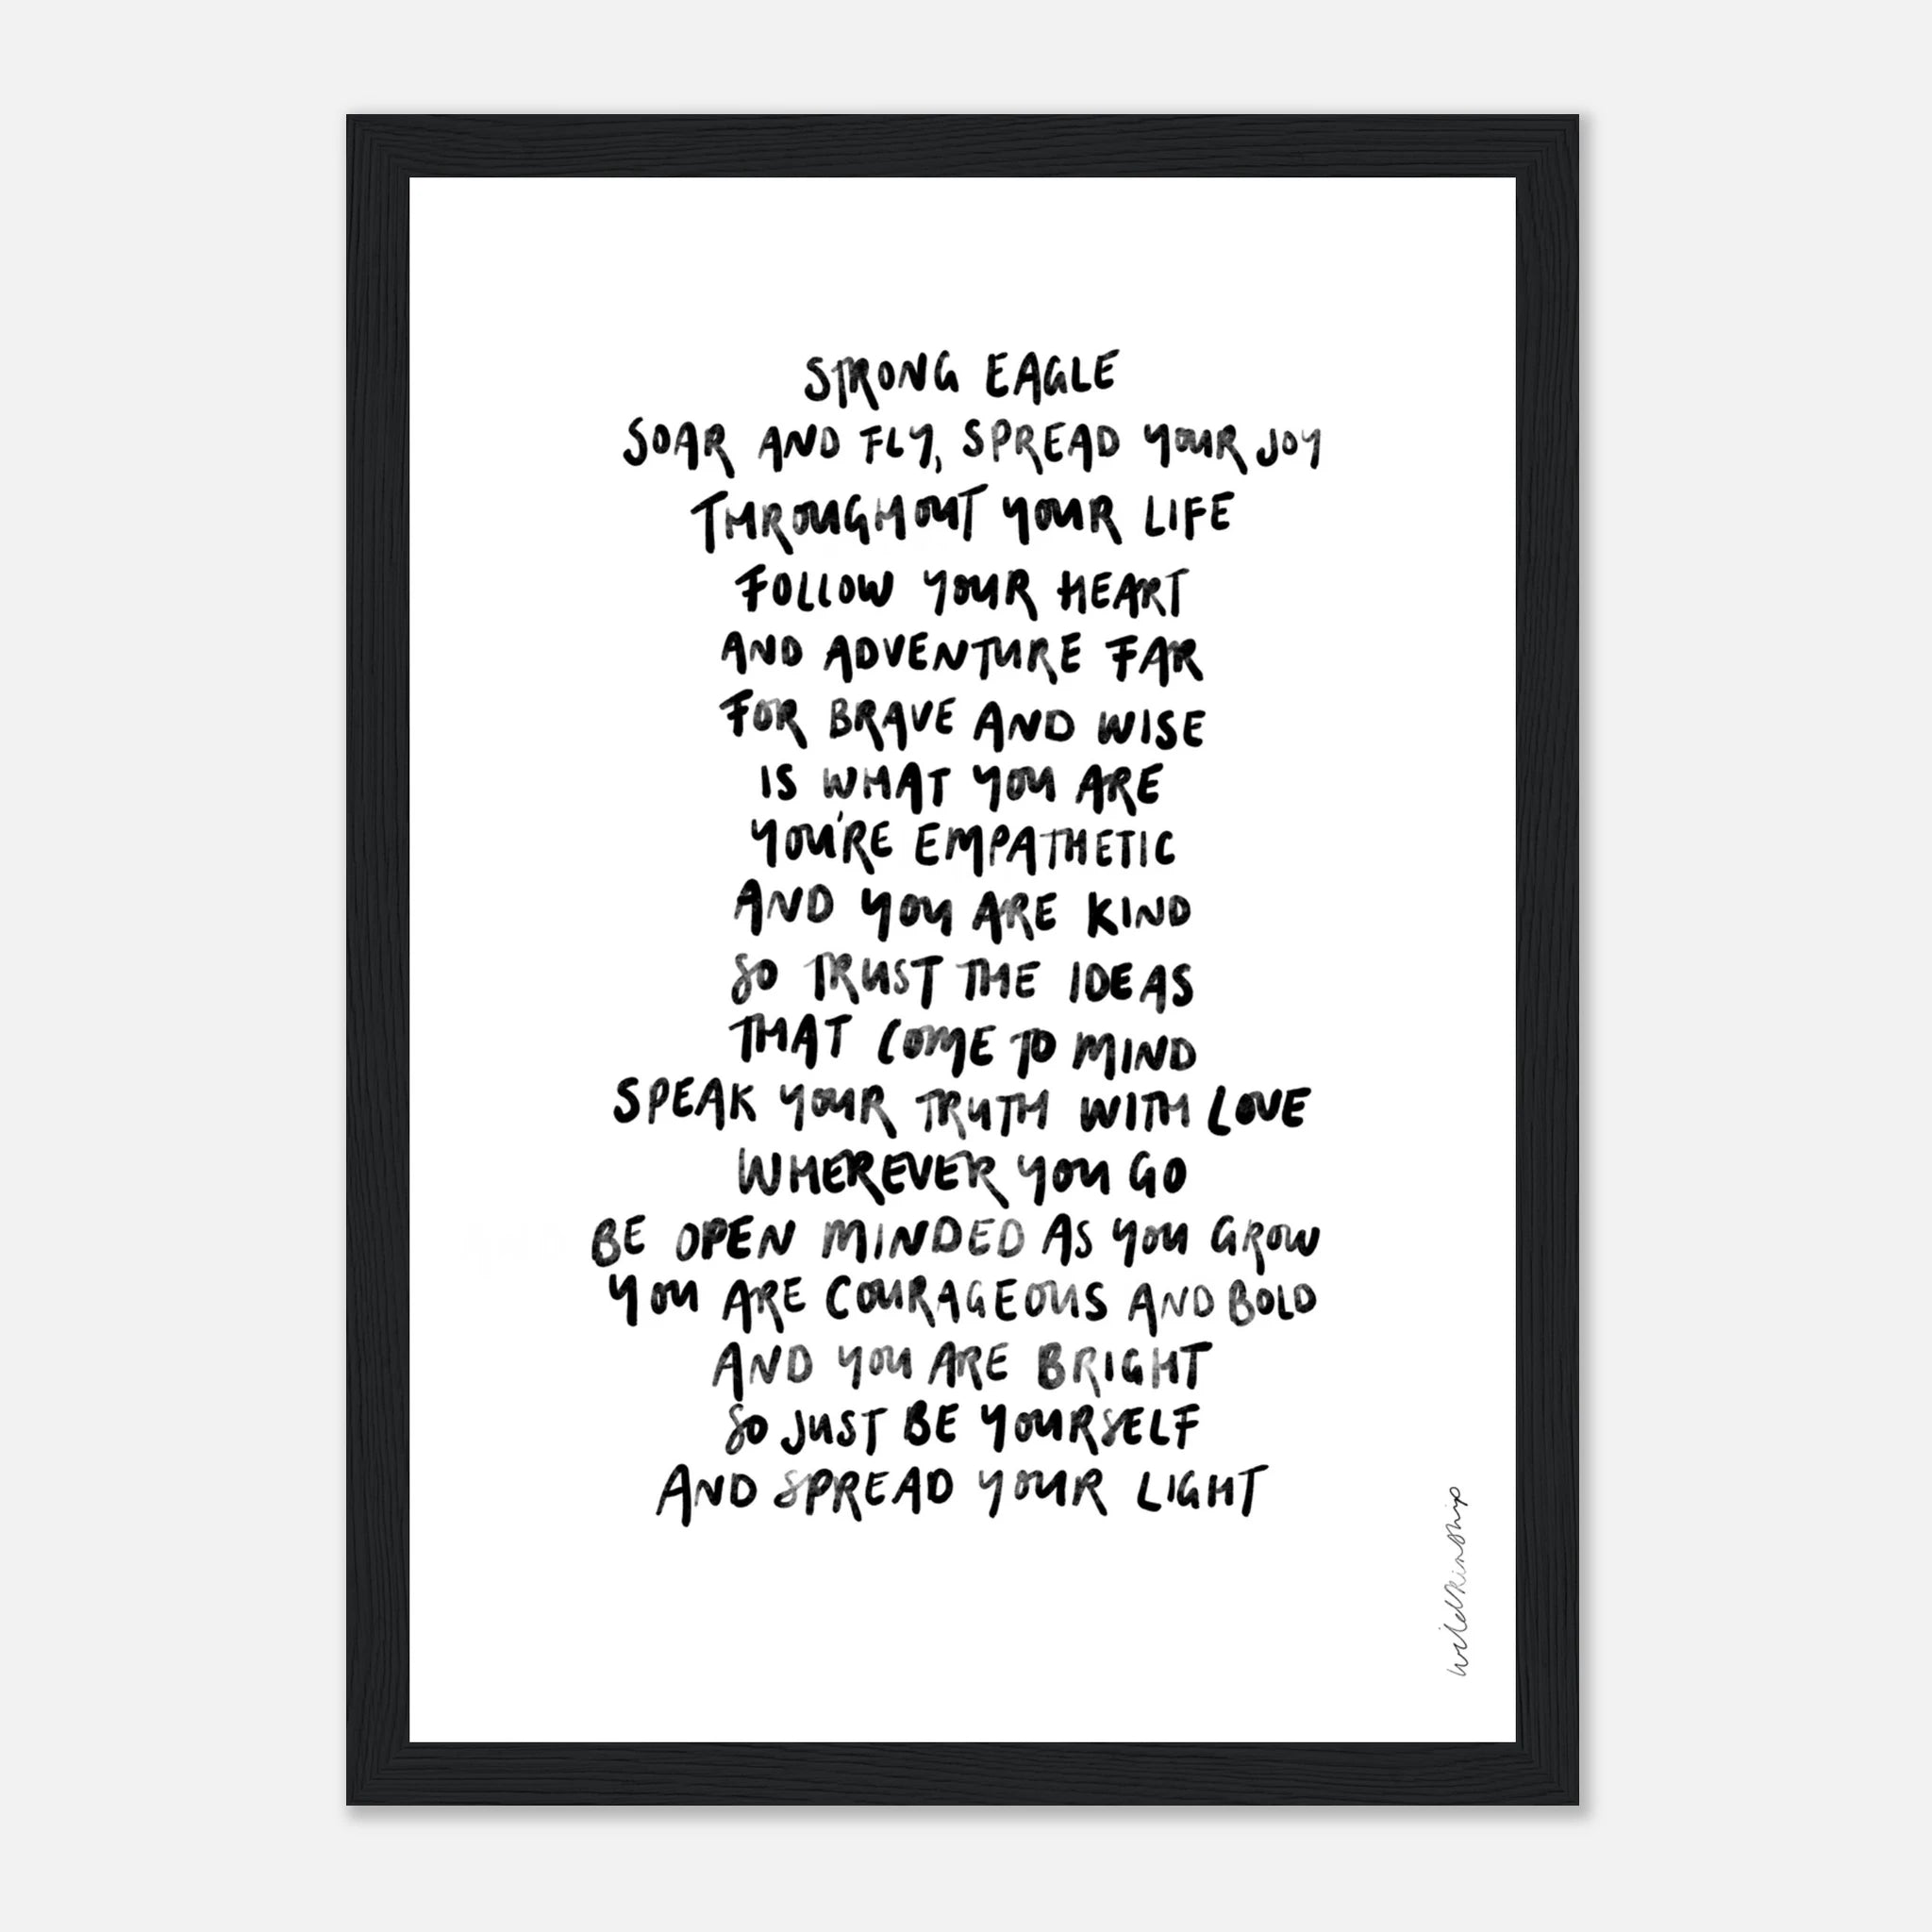 STRONG EAGLE
SOAR AND FLY, SPREAD YOUR JOY
THROUGHOUT YOUR LIFE
FOLLOW YOUR HEART
AND ADVENTURE FAR
FOR BRAVE AND WISE
IS WHAT YOU ARE
YOU'RE EMPATHETIC
AND YOU ARE KIND
SO TRUST THE IDEAS
THAT COME TO MIND
SPEAK YOUR TRUTH WITH LOVE
WHEREVER YOU GO
BE OPEN MINDED AS YOU GROW
YOU ARE COURAGEOUS AND BOLD
AND YOU ARE BRIGHT
SO JUST BE YOURSELF
AND SPREAD YOUR LIGHT
wildkinship